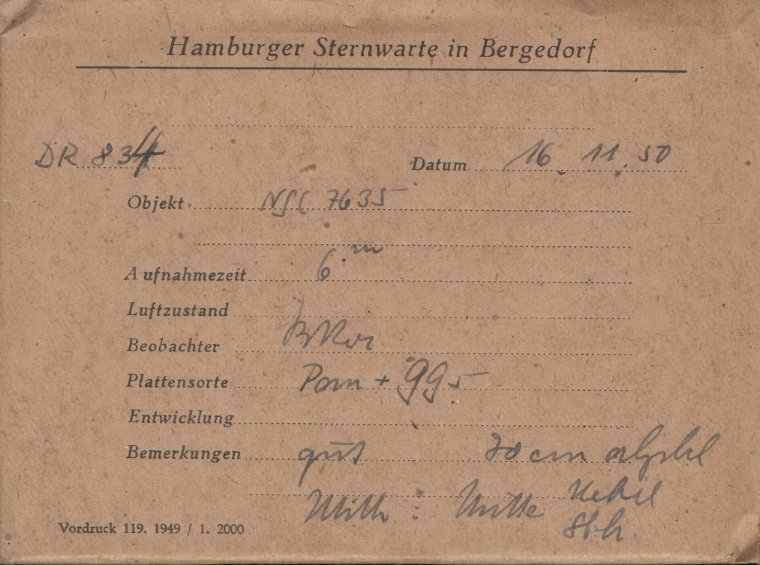 Hamburger Sternwarte in Bergedorf
DR 834 Datum 16. 11. 50
Objekt NGC 7635
Aufnahmezeit 6 m
Luftzustand
Beobachter
Plattensorte Pan + 995
Entwicklung
Bemerkungen gut 70 cm
Mitte
Vordruck 119. 1949 / 1. 2000